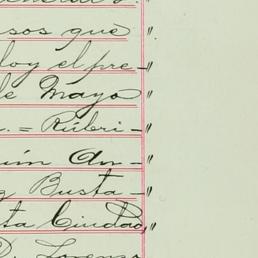 sos que "
loy el pre- "
de Mayo "
. = Rúbri- "
ún An- "
g Busta- "
ta Ciudad, "
D. Lorenzo